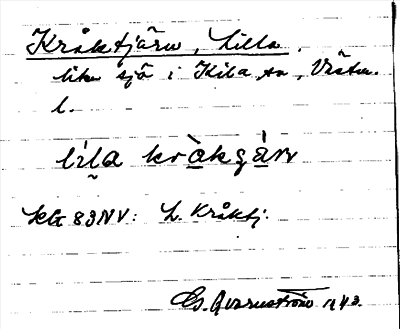 Kråktjärn, Lilla.
liten sjö i Kila sn, Västm.
l.
lìla kràkgàn
kbl 83NV: L. Kråktj.
G. Qvarnström 1943.